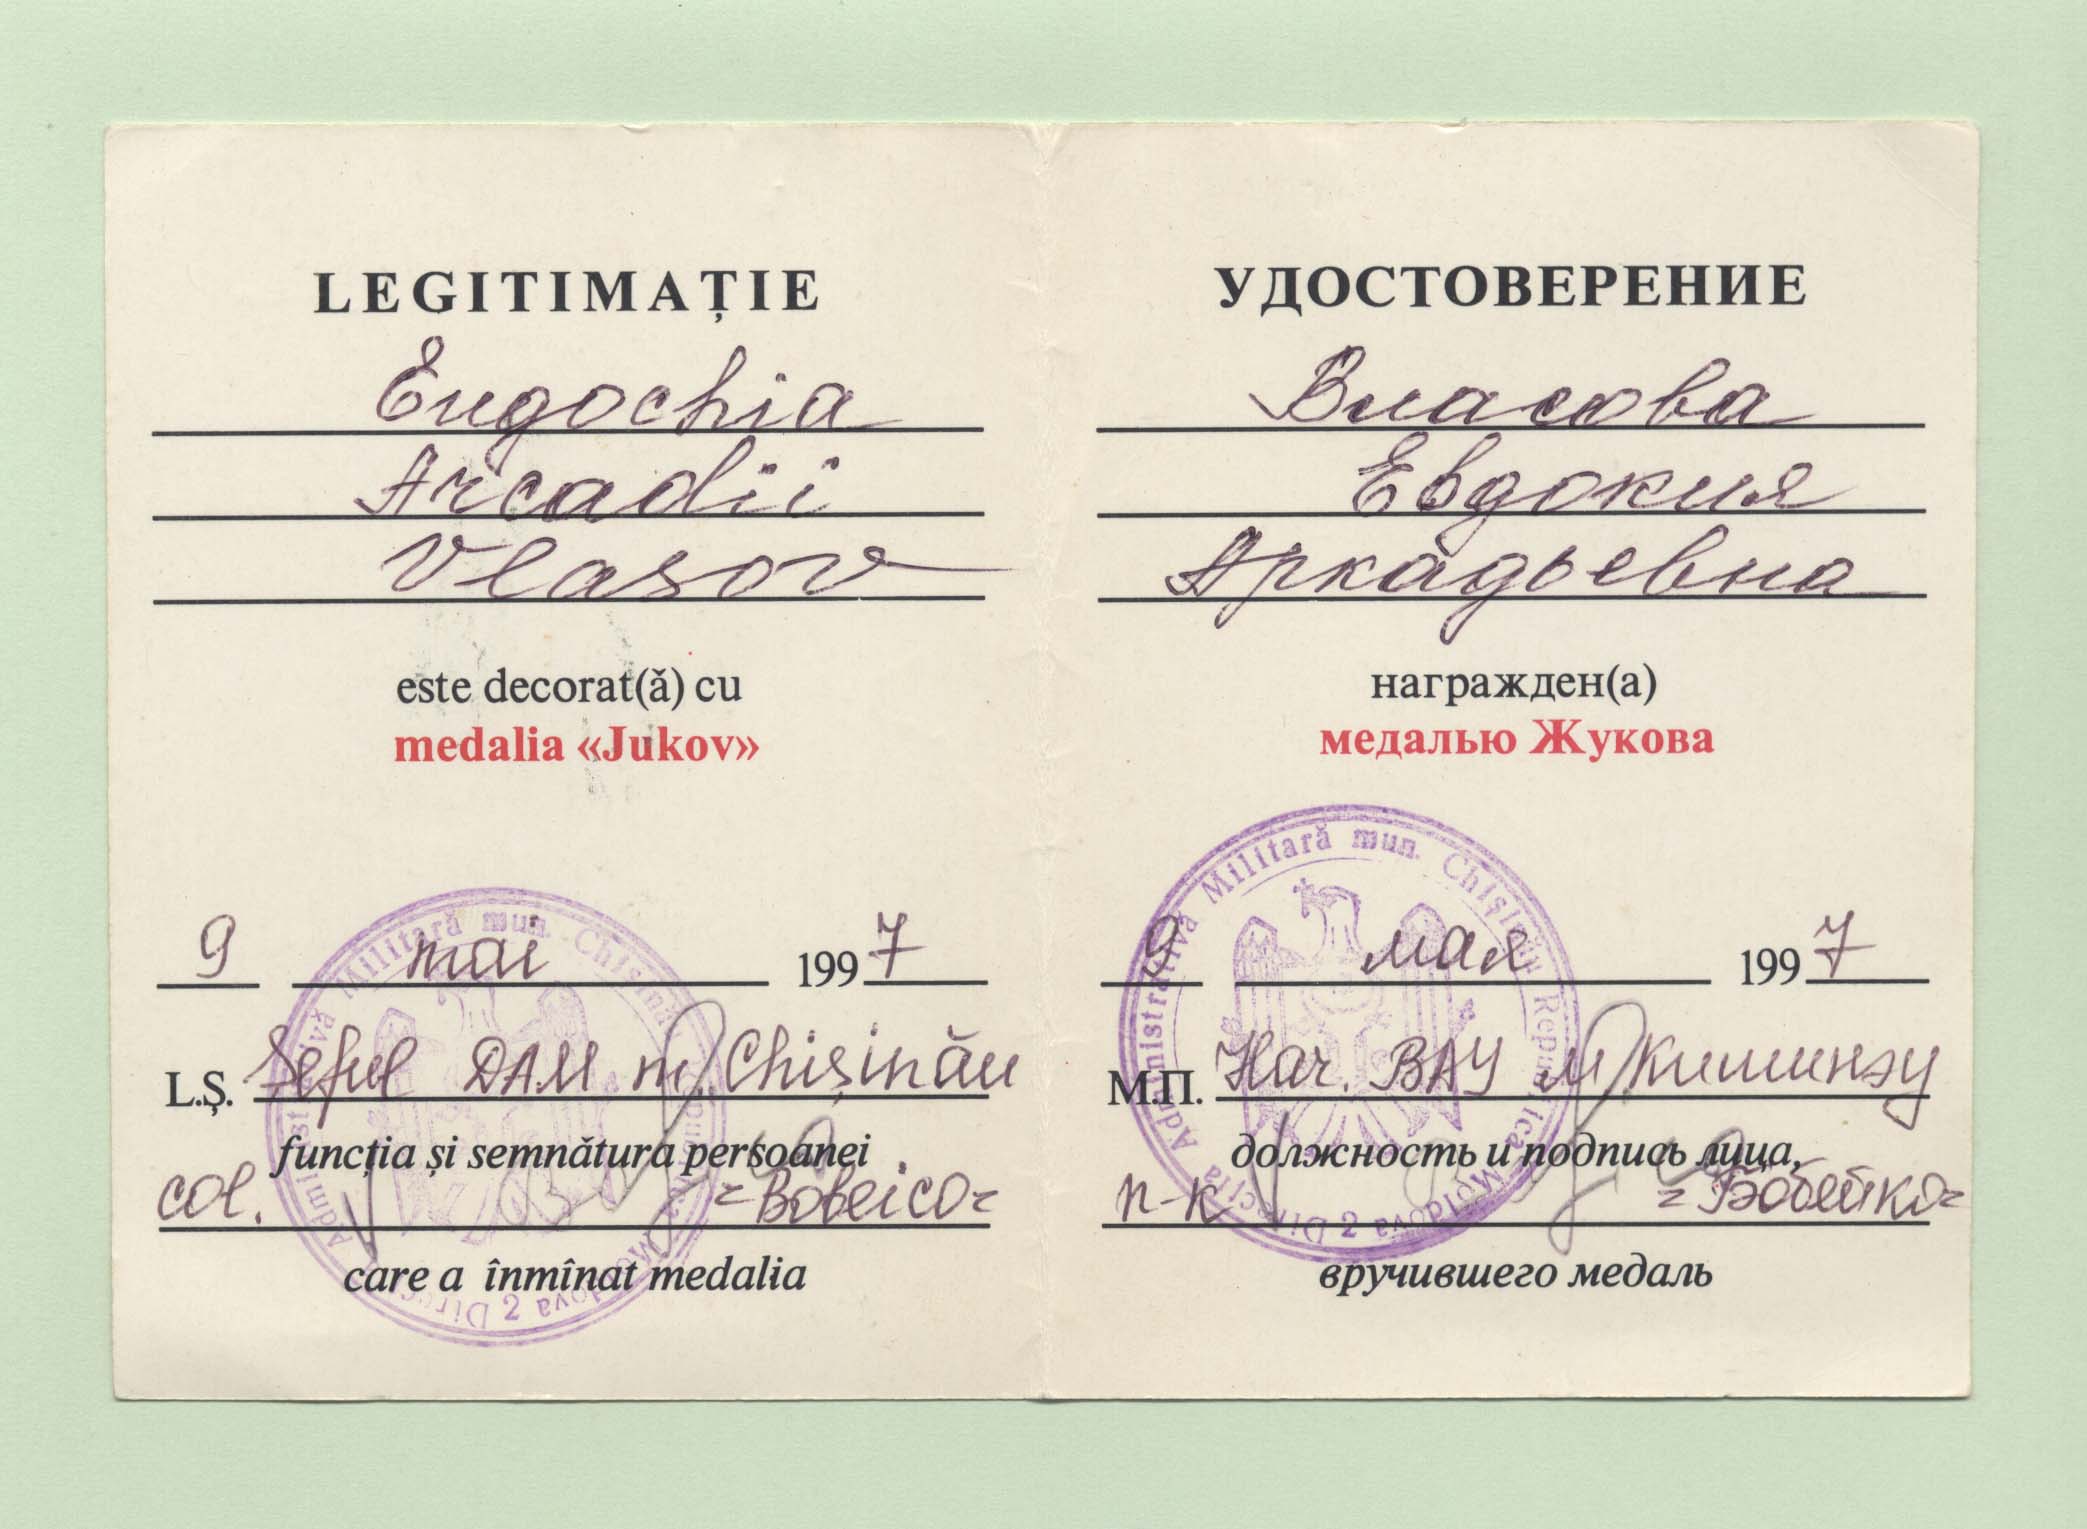 LEGITIMAȚIE
Eugochia
Arcadii
Vlasov
este decorat(ă) cu
medalia «Jukov»
9 mai 1997
L.Ș. Șeful DAM m. Chișinău
funcția și semnătura persoanei
col. Bobeico
care a înmînat medalia
Direcția Administrativă Militară mun. Chișinău Republica Moldova 2
УДОСТОВЕРЕНИЕ
Власова
Евдокия
Аркадьевна
награжден(а)
медалью Жукова
9 мая 1997
М.П. Нач. ВАУ м. Кишинэу
должность и подпись лица,
п-к Бобейко
вручившего медаль
Direcția Administrativă Militară mun. Chișinău Republica Moldova 2